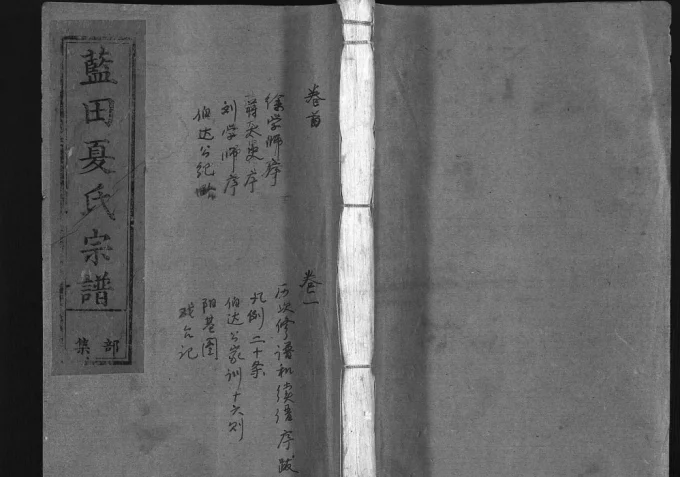 藍田夏氏宗譜
集部
卷首
徐学师序
蒋太史序
刘学师序
伯达公纪略
卷一
历次修谱和续谱序跋
凡例二十条
伯达公家训十六则
阳基图